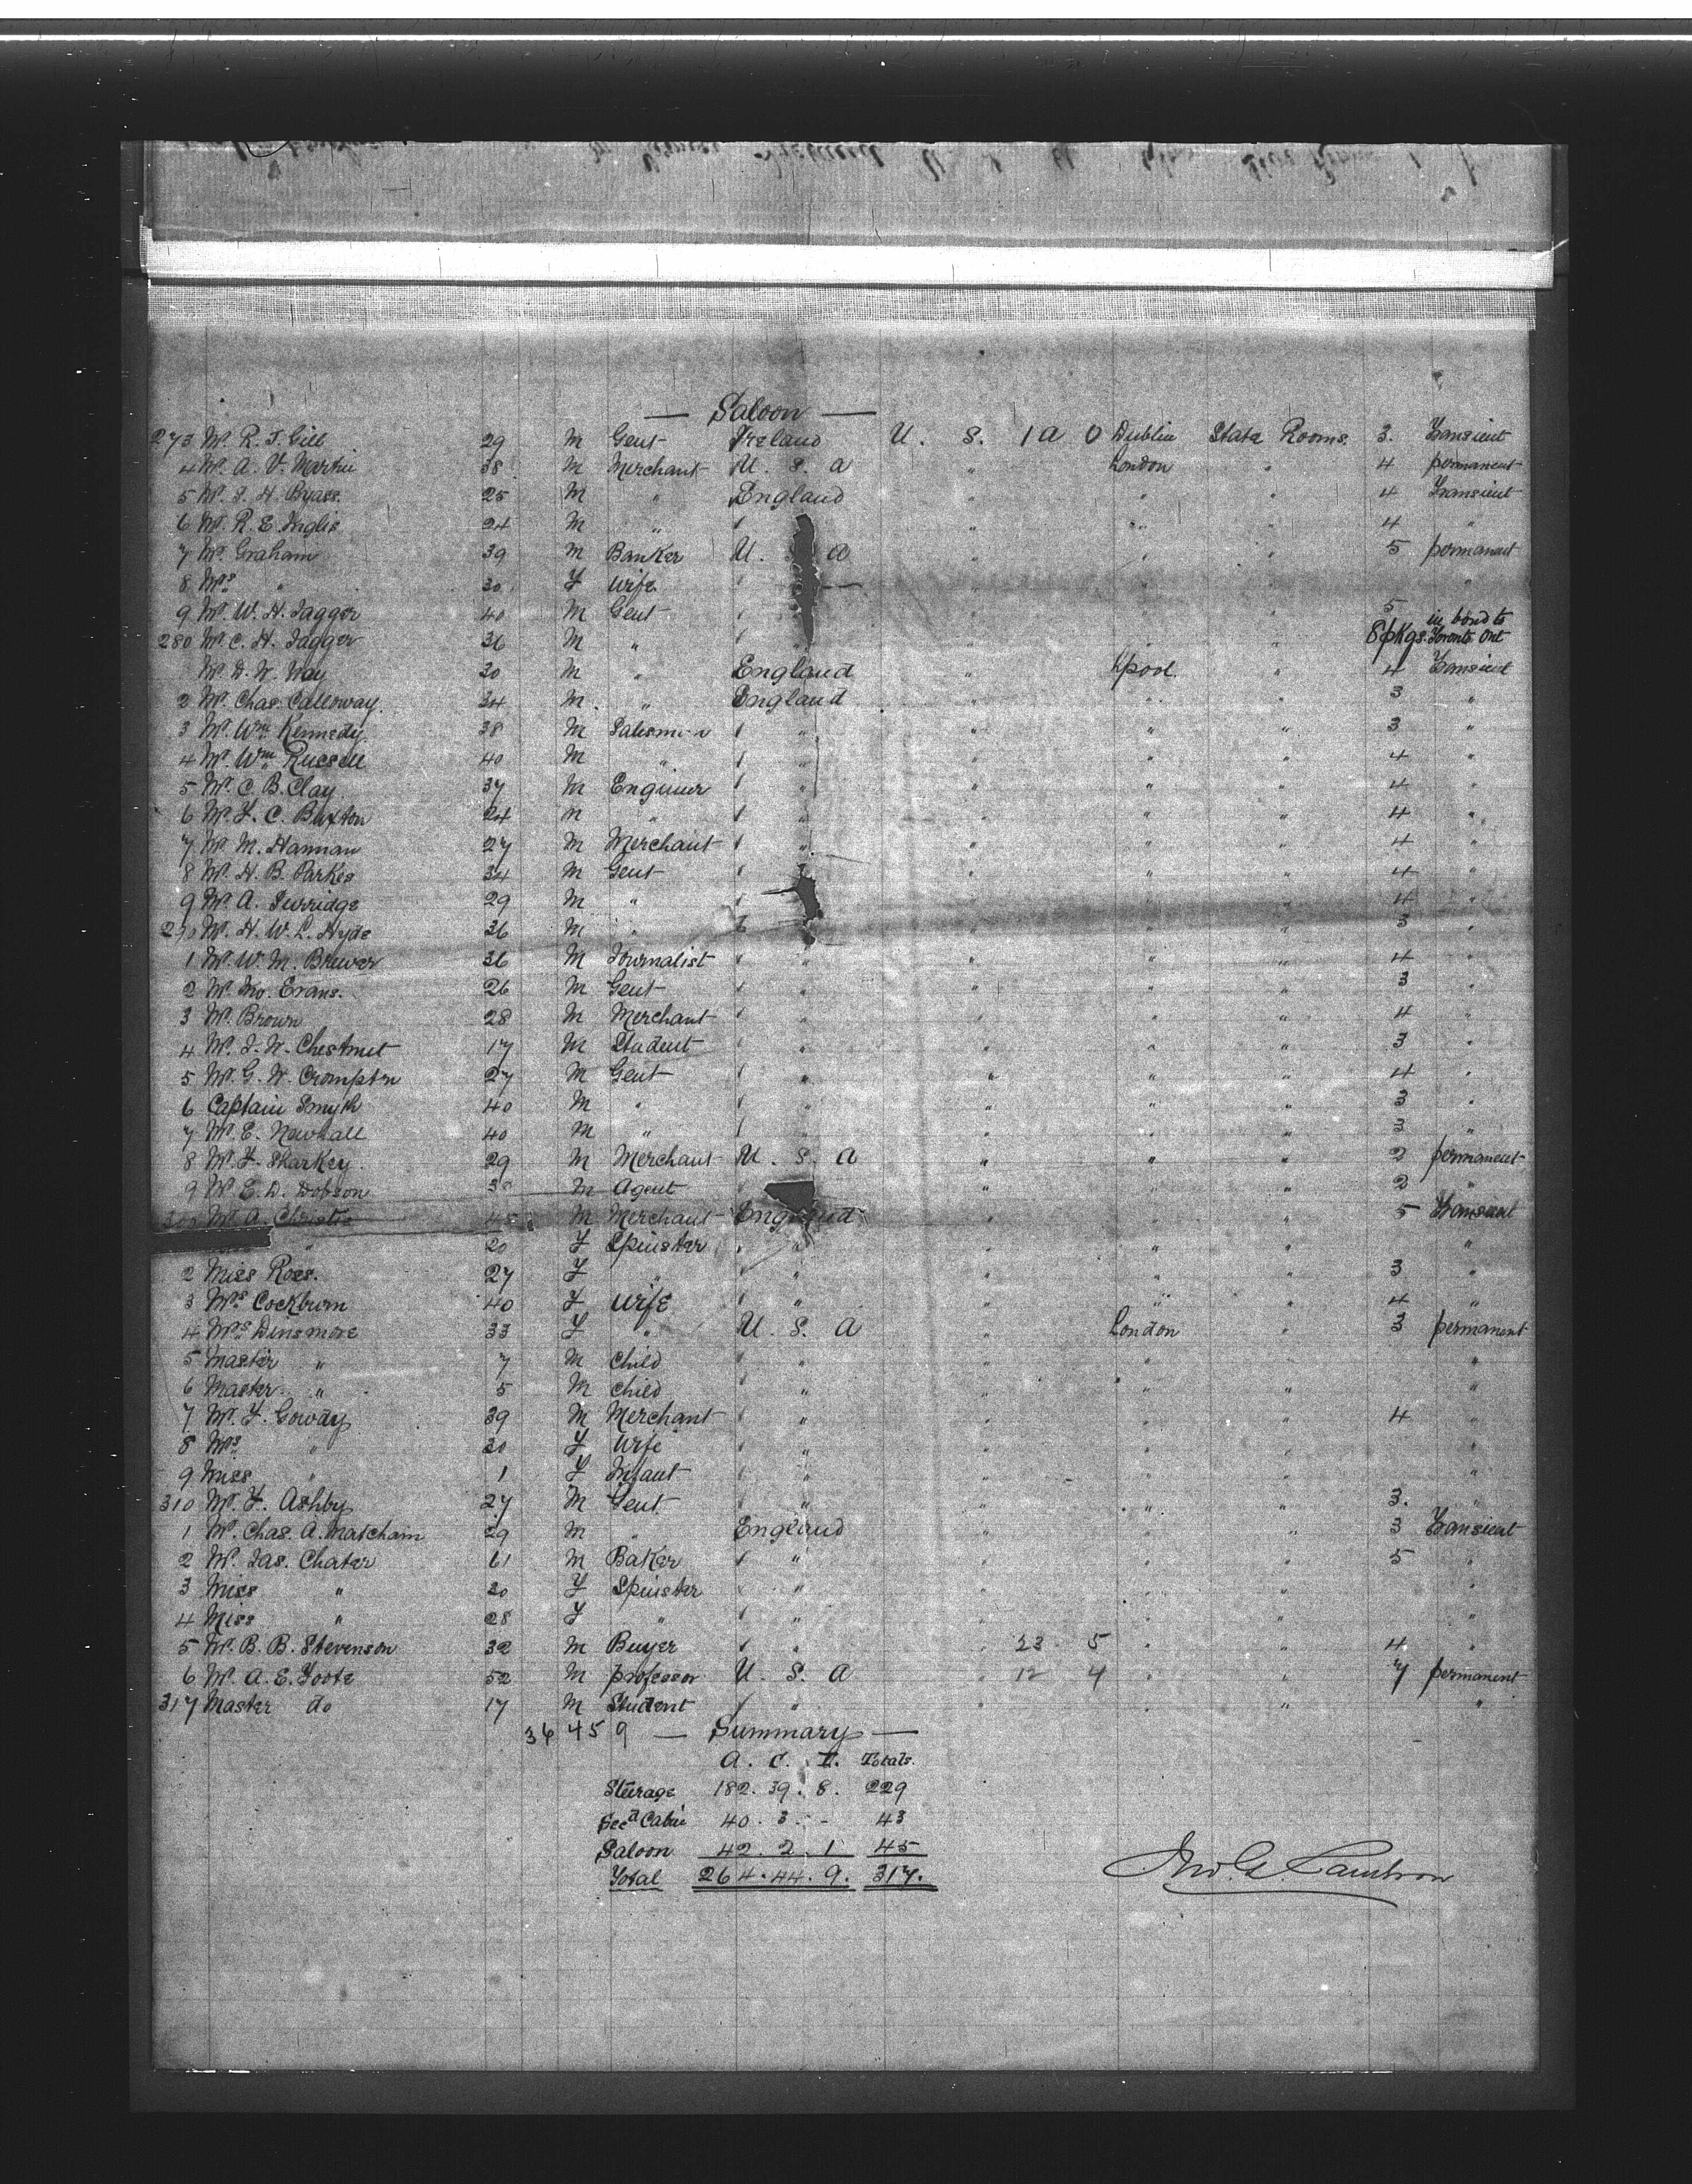 — Saloon —
273 Mr. R. T. Gill 29 M Gent Ireland U. S. 1 a 0 Dublin State Rooms 3. Transient
4 Mr. A. V. Martin 38 M Merchant U. S. a " London " 4 permanent
5 Mr. J. H. Byass. 25 M " England " " " 4 Transient
6 Mr. R. E. Inglis 24 M " " " " 4 "
7 Mr. Graham 39 M Banker U. a " " " 5 permanent
8 Mrs. " 30 F Wife " "
9 Mr. W. H. Jagger 40 M Gent " " " 5 in bond to
280 Mr. C. H. Jagger 36 M " " " 8 pkgs. Toronto Ont
Mr. D. W. Way 30 M " England " Lpool. " 4 Transient
2 Mr. Chas. Calloway. 34 M. " England " " " 3 "
3 Mr. Wm. Kennedy 38 M Salesman " " " " 3 "
4 Mr. Wm. Russell 40 M " " " " " 4 "
5 Mr. C. B. Clay 37 M Engineer " " " " 4 "
6 Mr. F. C. Buxton 24 M " " " " " 4 "
7 Mr. M. Hannan 27 M Merchant " " " " 4 "
8 Mr. H. B. Parkes 34 M Gent " " " 4 "
9 Mr. A. Surridge 29 M " " " " 4 "
290 Mr. H. W. L. Hyde 36 M " " " " 3 "
1 Mr. W. M. Brewer 36 M Journalist " " " " 4 "
2 Mr. Jno. Evans. 26 M Gent " " " " 3 "
3 Mr. Brown 28 M Merchant " " " " 4 "
4 Mr. J. W. Chestnut 17 M Student " " " " 3 "
5 Mr. G. W. Crompton 27 M Gent " " " " 4 "
6 Captain Smyth 40 M " " " " " 3 "
7 Mr. E. Newhall 40 M " " " " " 3 "
8 Mr. F. Sharkey. 29 M Merchant U. S. a " " " 2 permanent
9 Mr. E. D. Dobson M Agent " " " 2 "
Mr. A. Christie 45 M Merchant England " " " 5 Transient
" 20 F Spinster " " " " " "
2 Miss Ross. 27 F " " " " " 3 "
3 Mrs. Cockburn 40 F Wife " " " " 4 "
4 Mrs. Dinsmore 33 F " U. S. A " London " 3 permanent
5 Master " 7 M Child " " " " "
6 Master " 5 M Child " " " " "
7 Mr. F. Goway 39 M Merchant " " " " 4 "
8 Mrs. " 30 F Wife " " " " "
9 Miss " 1 F Infant " " " " "
310 Mr. F. Ashby 27 M Gent " " " " 3. "
1 Mr. Chas. A. Matcham 29 M " England " " " 3 Transient
2 Mr. Jas. Chater 61 M Baker " " " " 5 "
3 Miss " 20 F Spinster " " " " "
4 Miss " 28 F " " " " " "
5 Mr. B. B. Stevenson 32 M Buyer " " 23 5 " " 4 "
6 Mr. A. E. Foote 52 M professor U. S. A " 12 4 " " 7 permanent
317 Master do 17 M Student " " " "
36 45 9 — Summary —
A. C. I. Totals.
Steerage 182. 39. 8. 229
Secd Cabin 40. 3. - 43
Saloon 42. 2. 1 45
Total 264. 44. 9. 317.